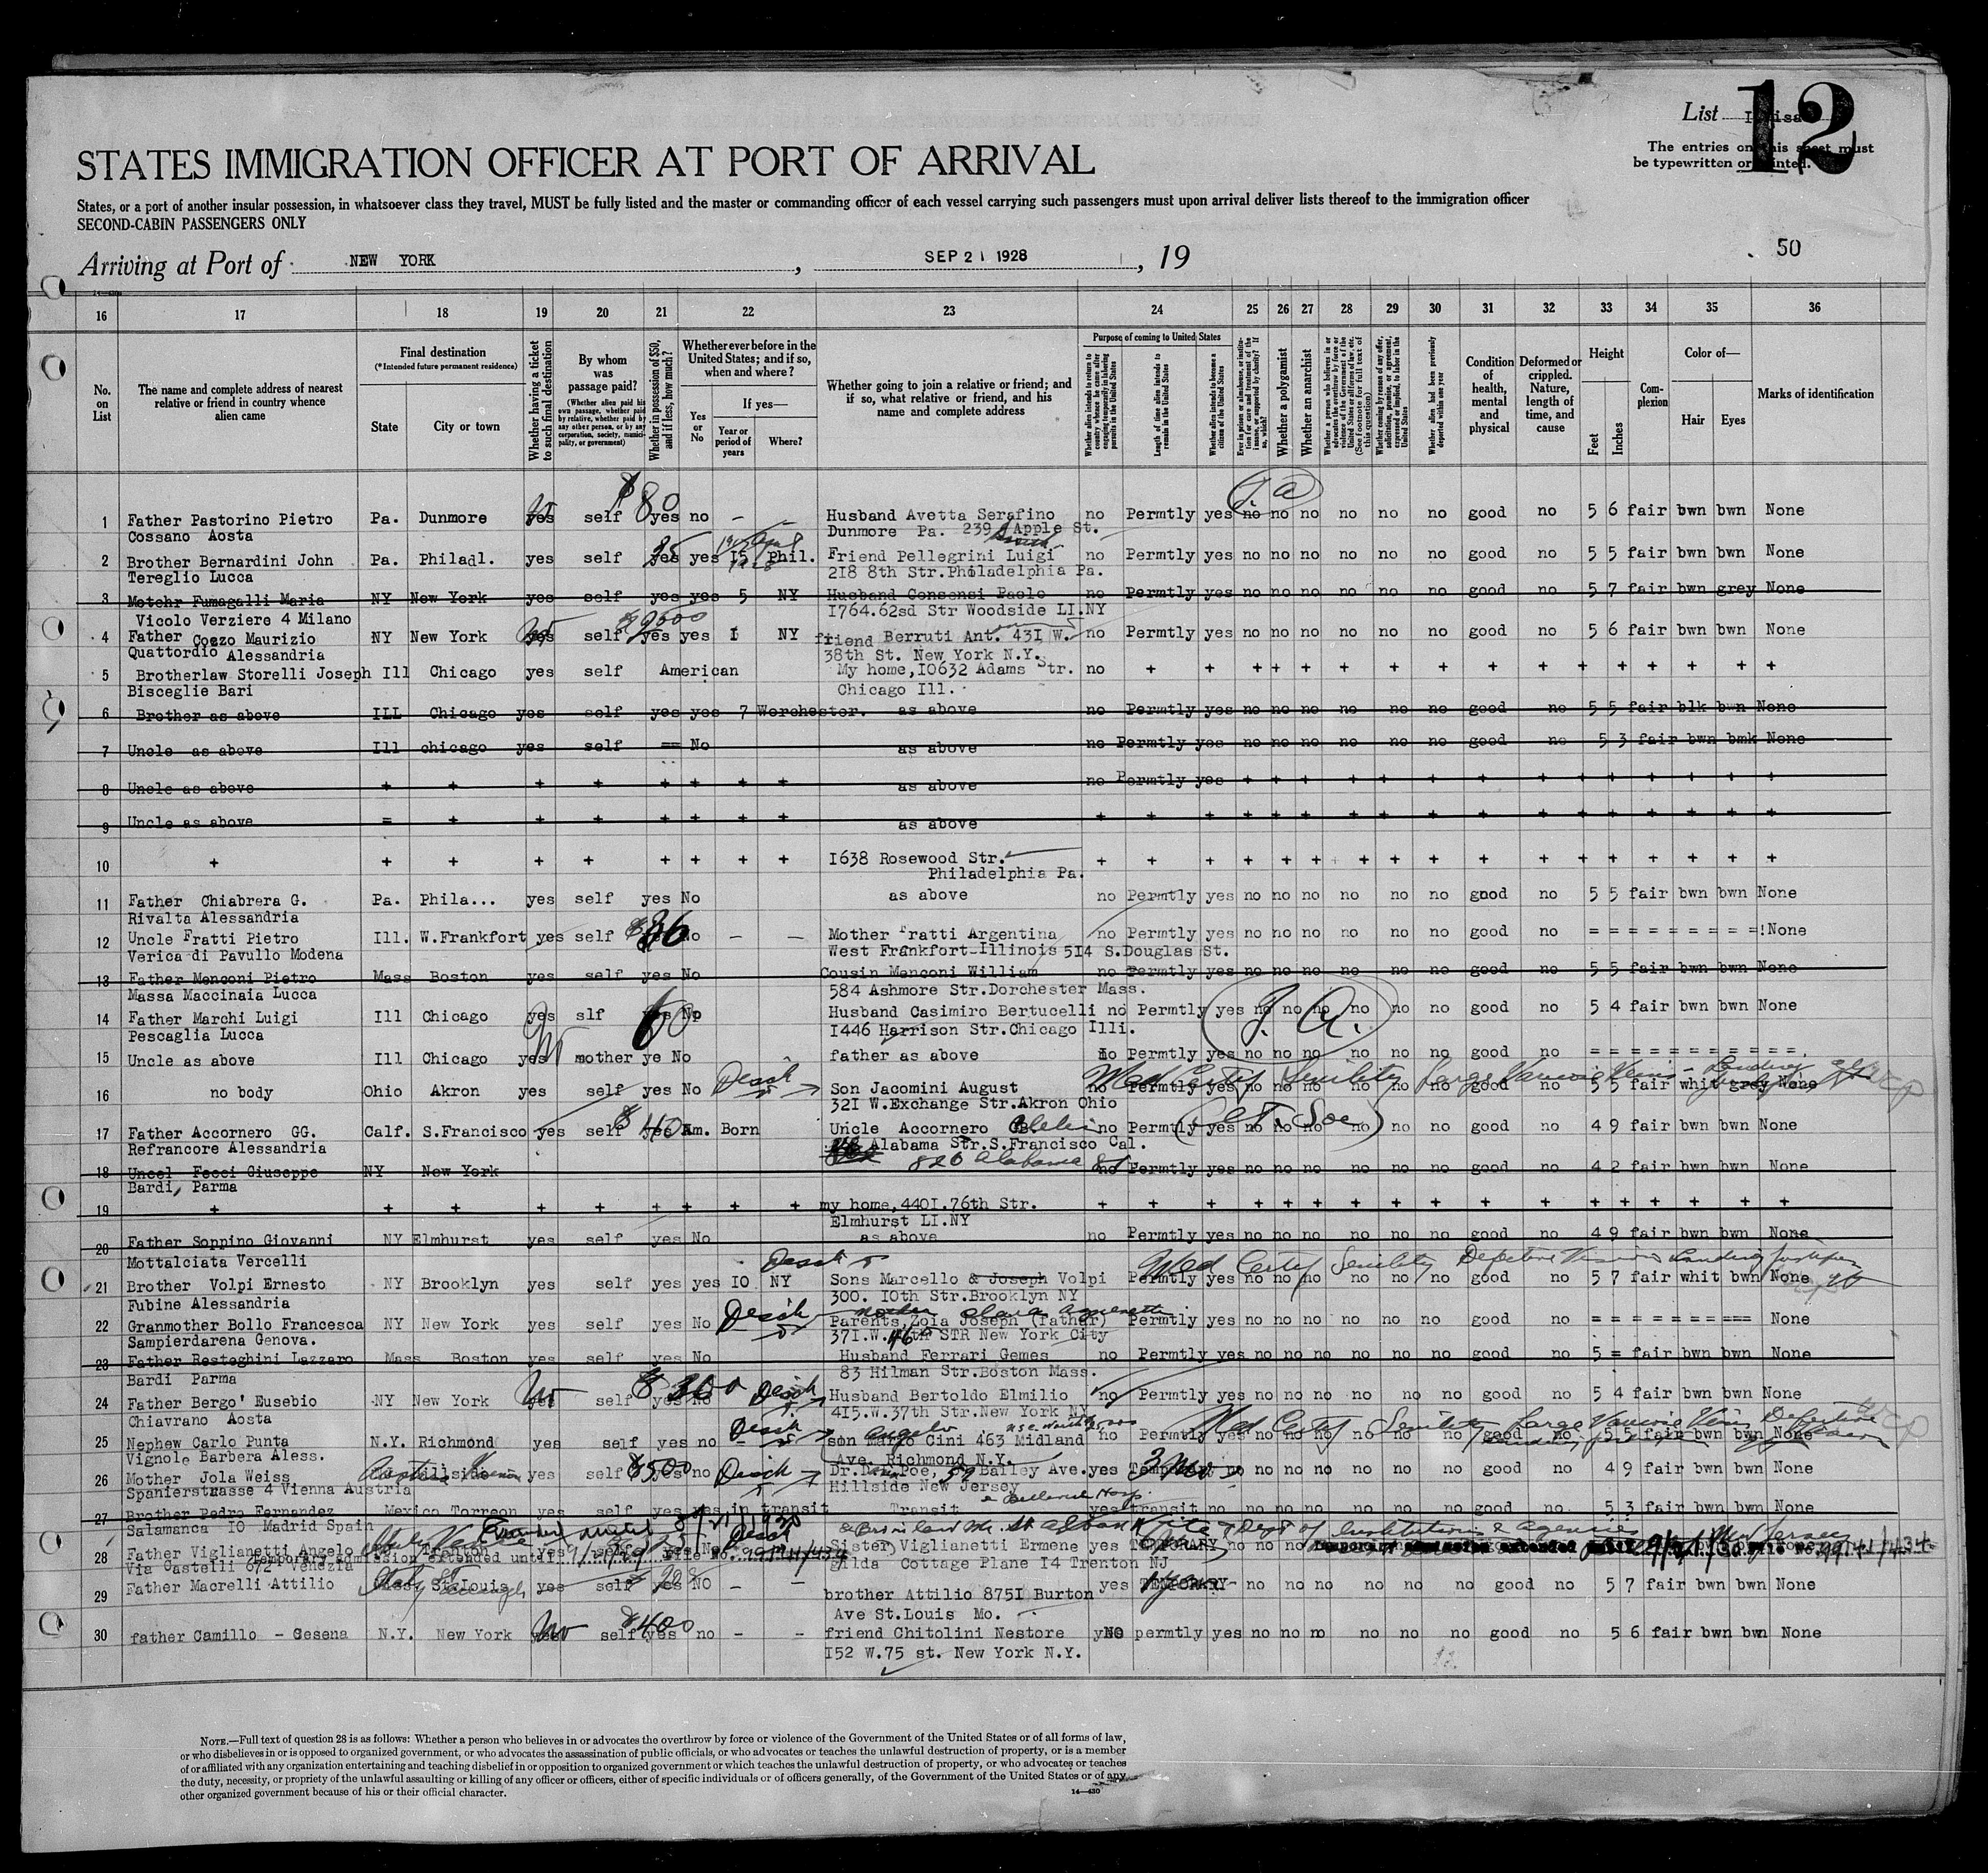 List
12
The entries on this sheet must
be typewritten or printed.
STATES IMMIGRATION OFFICER AT PORT OF ARRIVAL
States, or a port of another insular possession, in whatsoever class they travel, MUST be fully listed and the master or commanding officer of each vessel carrying such passengers must upon arrival deliver lists thereof to the immigration officer
SECOND-CABIN PASSENGERS ONLY
Arriving at Port of NEW YORK, SEP 21 1928, 19
50
16 17 18 19 20 21 22 23 24 25 26 27 28 29 30 31 32 33 34 35 36
No. on List
The name and complete address of nearest relative or friend in country whence alien came
Final destination (*Intended future permanent residence)
State
City or town
Whether having a ticket to such final destination
By whom was passage paid?
(Whether alien paid his own passage, whether paid by relative, whether paid by any other person, or by any corporation, society, municipality, or government)
Whether in possession of $50, and if less, how much?
Whether ever before in the United States; and if so, when and where?
Yes or No
If yes—
Year or period of years
Where?
Whether going to join a relative or friend; and if so, what relative or friend, and his name and complete address
Purpose of coming to United States
Whether alien intends to return to country whence he came after engaging temporarily in laboring pursuits in the United States
Length of time alien intends to remain in the United States
Whether alien intends to become a citizen of the United States
Whether a polygamist
Whether an anarchist
Whether alien had been previously deported within one year
Condition of health, mental and physical
Deformed or crippled. Nature, length of time, and cause
Height
Feet
Inches
Complexion
Color of—
Hair
Eyes
Marks of identification
$80
1 Father Pastorino Pietro Pa. Dunmore yes self yes no – – Husband Avetta Serafino no Permtly yes no no no no no no good no 5 6 fair bwn bwn None
Cossano Aosta Dunmore Pa. 239 Apple St.
2 Brother Bernardini John Pa. Philadl. yes self yes yes 15 Phil. Friend Pellegrini Luigi no Permtly yes no no no no no no good no 5 5 fair bwn bwn None
Tereglio Lucca 218 8th Str.Philadelphia Pa.
3 Motehr Fumagalli Maria NY New York yes self yes yes 5 NY Husband Consensi Paolo no Permtly yes no no no no no no good no 5 7 fair bwn grey None
Vicolo Verziere 4 Milano 1764.62sd Str Woodside LI.NY
4 Father Cozzo Maurizio NY New York yes self yes yes I NY friend Berruti Ant. 431 W. no Permtly yes no no no no no no good no 5 6 fair bwn bwn None
Quattordio Alessandria 38th St. New York N.Y.
5 Brotherlaw Storelli Joseph Ill Chicago yes self American My home,10632 Adams Str. no + + + + + + + + + + + + + + + +
Bisceglie Bari Chicago Ill.
6 Brother as above ILL Chicago yes self yes yes 7 Worchester. as above no Permtly yes no no no no no no good no 5 5 fair blk bwn None
7 Uncle as above Ill chicago yes self == No as above no Permtly yes no no no no no no good no 5 3 fair bwn bmk None
8 Uncle as above + + + + + + + + as above no Permtly yes + + + + + + + + + + + + + +
9 Uncle as above = + + + + + + + as above + + + + + + + + + + + + + + + + +
10 + + + + + + + + + 1638 Rosewood Str. + + + + + + + + + + + + + + + + +
Philadelphia Pa.
11 Father Chiabrera G. Pa. Phila... yes self yes No as above no Permtly yes no no no no no no good no 5 5 fair bwn bwn None
Rivalta Alessandria
12 Uncle Fratti Pietro Ill. W.Frankfort yes self no – – Mother Fratti Argentina no Permtly yes no no no no no no good no = = = = = = = = =!None
Verica di Pavullo Modena West Frankfort-Illinois 514 S.Douglas St.
13 Father Menconi Pietro Mass Boston yes self yes No Cousin Menconi William no Permtly yes no no no no no no good no 5 5 fair bwn bwn None
Massa Maccinaia Lucca 584 Ashmore Str.Dorchester Mass.
14 Father Marchi Luigi Ill Chicago yes slf yes No Husband Casimiro Bertucelli no Permtly yes no no no no no no good no 5 4 fair bwn bwn None
Pescaglia Lucca 1446 Harrison Str.Chicago Illi.
15 Uncle as above Ill Chicago yes mother ye No father as above no Permtly yes no no no no no no good no = = = = = = = = = =.
16 no body Ohio Akron yes self yes No Son Jacomini August no Permtly yes no no no no no no good no 5 5 fair whit grey None
Med Certif Senility Large Varicose Veins
321 W.Exchange Str.Akron Ohio
17 Father Accornero GG. Calf. S.Francisco yes self $40 Am. Born Uncle Accornero no Permtly yes no no no no no no good no 4 9 fair bwn bwn None
Refrancore Alessandria Alabama Str.S.Francisco Cal.
826 Alabama St
18 Uncel Fecci Giuseppe NY New York no Permtly yes no no no no no no good no 4 2 fair bwn bwn None
Bardi, Parma
19 + + + + + + + + + my home,4401.76th Str. + + + + + + + + + + + + + + + + +
Elmhurst LI.NY
20 Father Soppino Giovanni NY Elmhurst yes self yes No as above no Permtly yes no no no no no no good no 4 9 fair bwn bwn None
Mottalciata Vercelli
Med Certif Senility Defective Vision
21 Brother Volpi Ernesto NY Brooklyn yes self yes yes 10 NY Sons Marcello & Joseph Volpi Permtly yes no no no no no no good no 5 7 fair whit bwn None
Fubine Alessandria 300. 10th Str.Brooklyn NY
22 Granmother Bollo Francesca NY New York yes self yes No Parents,Zoia Joseph (father) Permtly yes no no no no no no good no = = = = = = === None
Sampierdarena Genova. 371.W.46th STR New York City
23 Father Resteghini Lazzaro Mass Boston yes self yes No Husband Ferrari Gemes no Permtly yes no no no no no no good no 5 = fair bwn bwn None
Bardi Parma 83 Hilman Str.Boston Mass.
24 Father Bergo' Eusebio NY New York yes self yes no Husband Bertoldo Elmilio no Permtly yes no no no no no no good no 5 4 fair bwn bwn None
Chiavrano Aosta 415.W.37th Str.New York NY
25 Nephew Carlo Punta N.Y. Richmond yes self yes no – son Mario Cini 463 Midland no Permtly yes no no no no no no good no 5 5 fair bwn bwn None
Med Certif Senility Large Varicose Veins Defective
Vignole Barbera Aless. Ave. Richmond N.Y.
26 Mother Jola Weiss Hillside yes self $500 no Dr. Poe, 59 Bailey Ave. yes 3 mo no no no no no no no good no 4 9 fair bwn bwn None
Spanierstrasse 4 Vienna Austria Hillside New Jersey
27 Brother Pedro Fernandez Mexico Torreon yes self yes yes in transit Transit yes transit no no no no no no no good no 5 3 fair bwn bwn None
Salamanca 10 Madrid Spain
28 Father Viglianetti Angelo Trenton yes self yes No Sister Viglianetti Ermene yes TEMPORARY no no no
Temporary admission extended until
Via Castelli 672 Venezia gilda Cottage Plane 14 Trenton NJ
29 Father Macrelli Attilio St.Louis yes self NO – – brother Attilio 8751 Burton yes TEMPORARY no no no no no no good no 5 7 fair bwn bwn None
Ave St.Louis Mo.
30 father Camillo – Cesena N.Y. New York yes self $400 yes no – – friend Chitolini Nestore NO permtly yes no no no no no no good no 5 6 fair bwn bwn None
152 W.75 st. New York N.Y.
NOTE.—Full text of question 28 is as follows: Whether a person who believes in or advocates the overthrow by force or violence of the Government of the United States or of all forms of law,
or who disbelieves in or is opposed to organized government, or who advocates the assassination of public officials, or who advocates or teaches the unlawful destruction of property, or is a member
of or affiliated with any organization entertaining and teaching disbelief in or opposition to organized government or which teaches the unlawful destruction of property, or who advocates or teaches
the duty, necessity, or propriety of the unlawful assaulting or killing of any officer or officers, either of specific individuals or of officers generally, of the Government of the United States or of any
other organized government because of his or their official character.
14—430